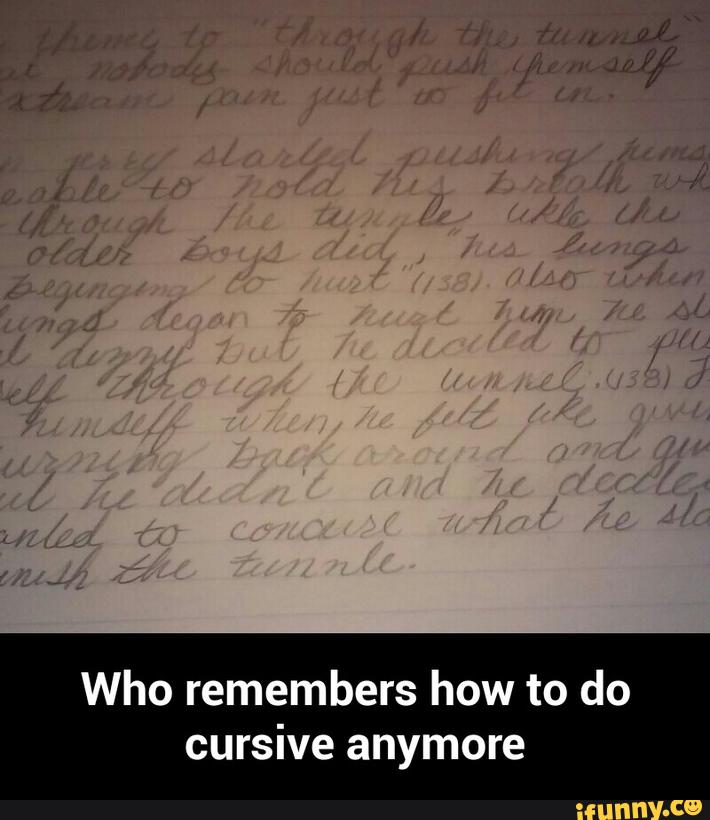 theme to "through the tunnel"
at nobody should push themself
xtream pain just to fit in.
n jerry started pushing hims
e able to hold his breath wh
through the tunnle like the
older boys did, "his lungs
beginging to hurt" (138). also when
lungs degan to hurt him he st
t dizzy but he decided to pus
self through the tunnel. (138) J
himself when he felt like givi
urning back around and giv
ut he didn't and he decided
anted to what he sta
inish the tunnle.
Who remembers how to do
cursive anymore
ifunny.co